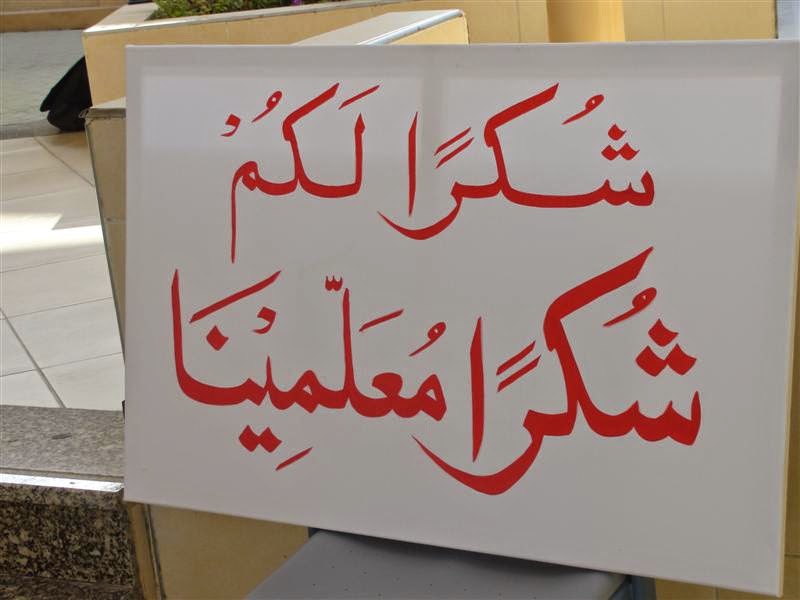 شُكرًا لَكُمْ
شُكرًا مُعَلّمِيْنَا